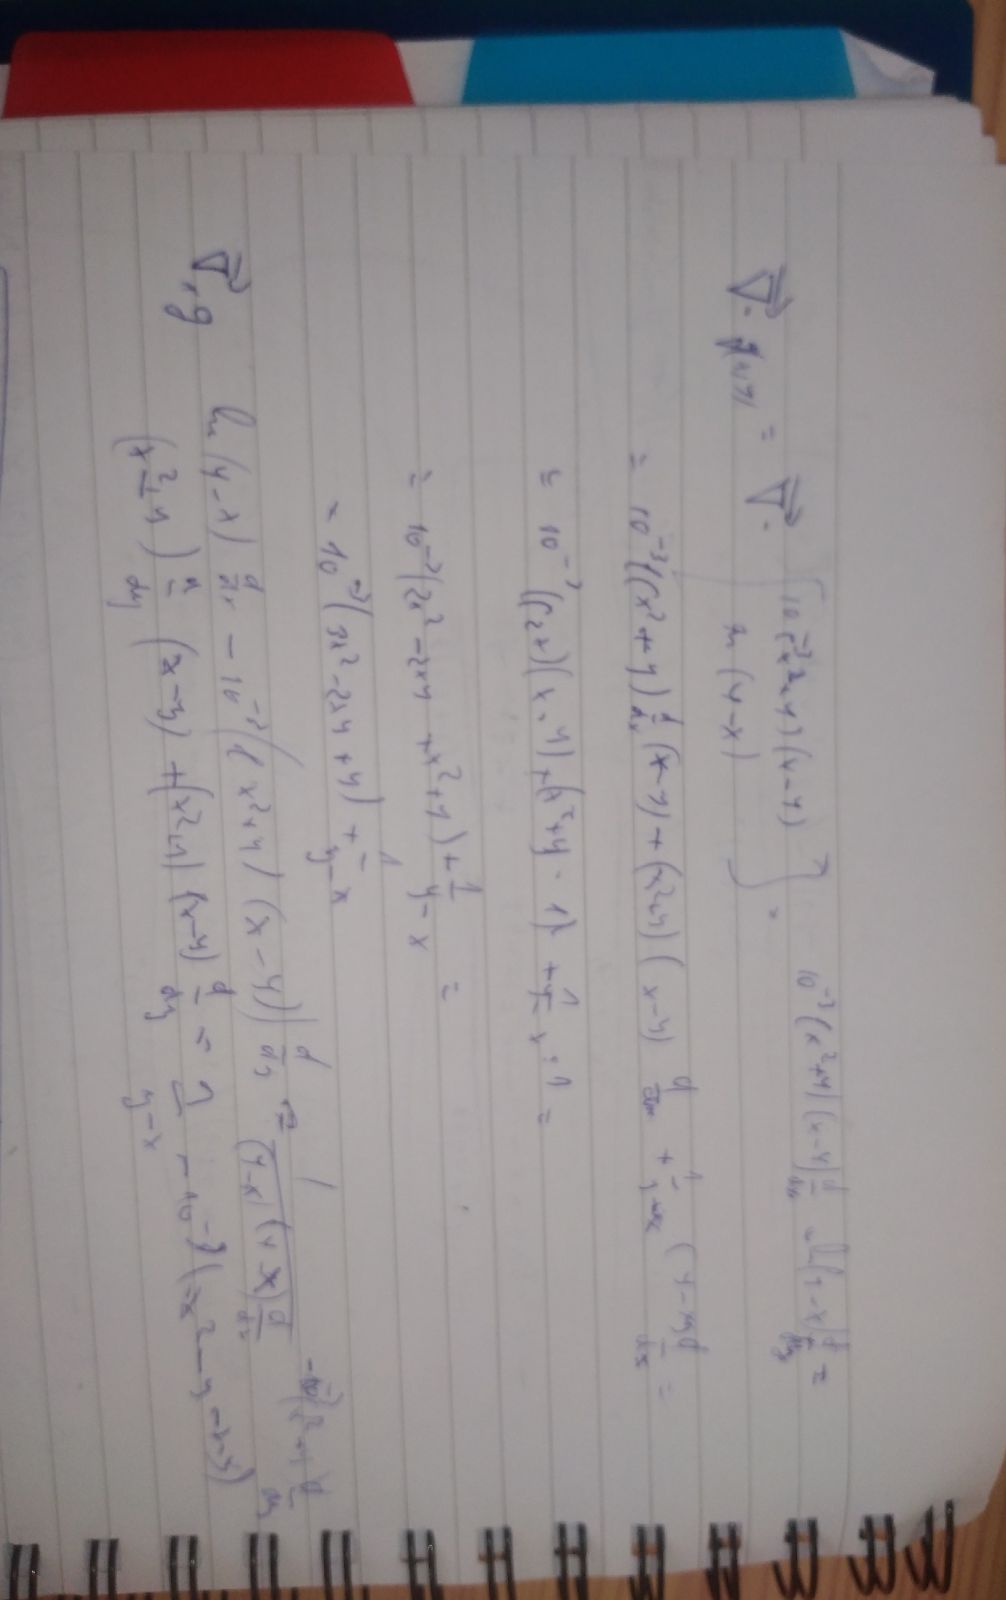 ∇⃗ · g(x,y) = ∇⃗ · [10⁻³(x²+y)(x-y) ln(y-x)] = 10⁻³(x²+y)(x-y) d/dx ln(y-x) d/dy =
= 10⁻³((x²+y) d/dx (x-y) + (x²+y)(x-y) d/dx + 1/y-x (y-x) d/dx =
= 10⁻³((2x)(x-y) + (x²+y · 1) + 1/y-x · 1 =
= 10⁻³(2x²-2xy +x²+y) + 1/y-x =
= 10⁻³(3x²-2xy+y) + 1/y-x
∇⃗ × g ln(y-x) d/dx - 10⁻³((x²+y)(x-y)) d/dy = 1/(y-x) (y-x) d/dx -10⁻³(x²+y d/dy
(x²+y) d/dy (x-y) + (x²+y)(x-y) d/dy = 1/y-x - 10⁻³(-x²-y